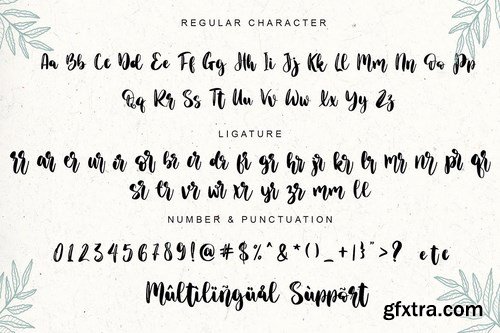 REGULAR CHARACTER
Aa Bb Cc Dd Ee Ff Gg Hh Ii Jj Kk Ll Mm Nn Oo Pp
Qq Rr Ss Tt Uu Vv Ww Xx Yy Zz
LIGATURE
rr ar er ur or br cr dr fr gr hr jr kr lr mr nr pr qr
sr tr vr wr xr yr zr mm ll
NUMBER & PUNCTUATION
0123456789!@#$%^&*()_+|}">? etc
Múltilïñgüál Sùppõrt
gfxtra.com